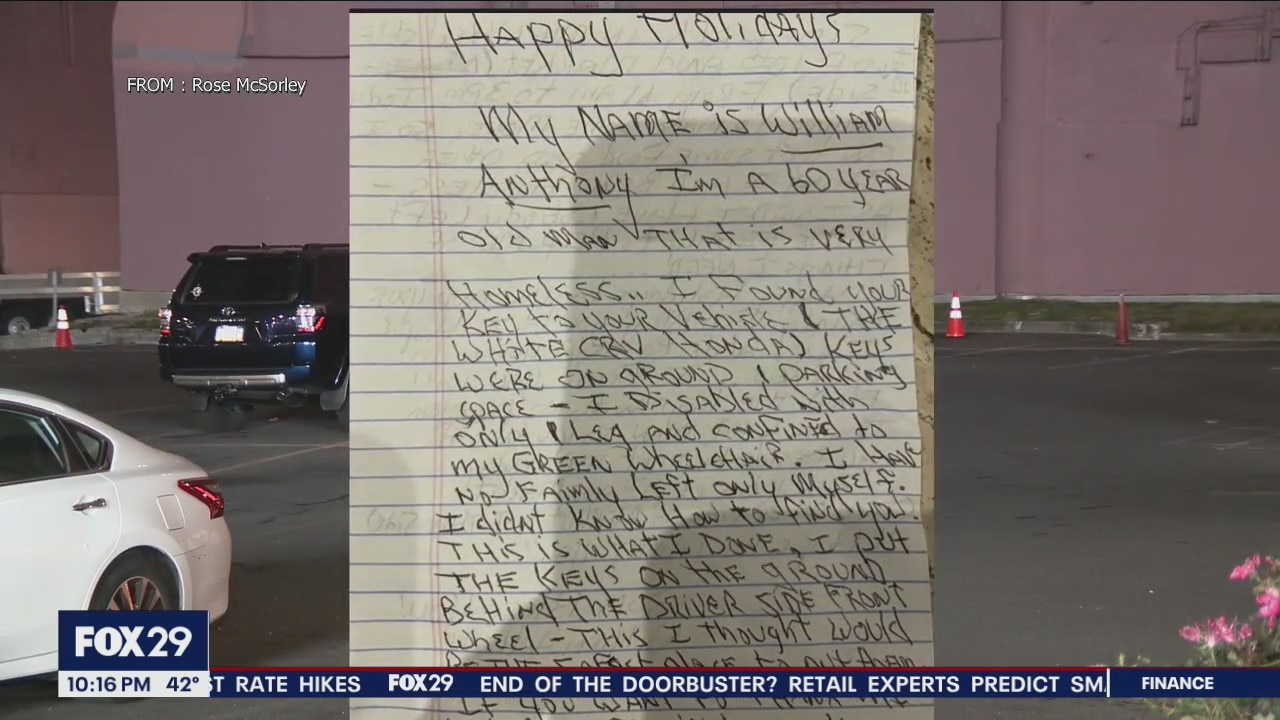 FROM : Rose McSorley
Happy Holidays
My NAME is William
Anthony I'm A 60 YEAR
Old man THAT is VERY
Homeless.. I Found your
Key to your Vehicle ( THE
WHITE CRV HONDA) KEYS
WERE ON GROUND / PARKING
SPACE - I DISABLED With
ONLY 1 Leg AND CONFINED to
my GREEN WheelchAIR. I HAVE
NO FAIMLY Left only Myself.
I didnt KNOW How to find you.
THIS IS WHAT I DONE, I put
THE KEYS ON the GROUND
BEHIND THE DRIVER SIDE FRONT
Wheel - THIS I thought would
Be THE SAFEST place to put them
IF YOU WANT TO THANK ME
FOX 29
10:16 PM 42° ST RATE HIKES FOX 29 END OF THE DOORBUSTER? RETAIL EXPERTS PREDICT SMA FINANCE